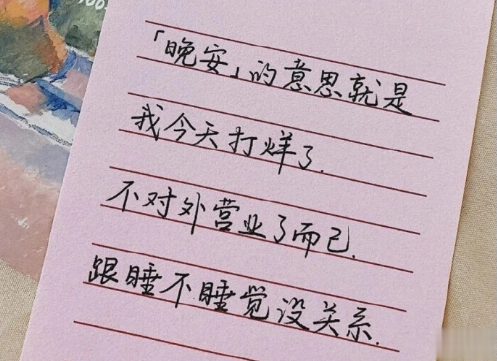 「晚安」的意思就是
我今天打烊了.
不对外营业了而已.
跟睡不睡觉没关系.